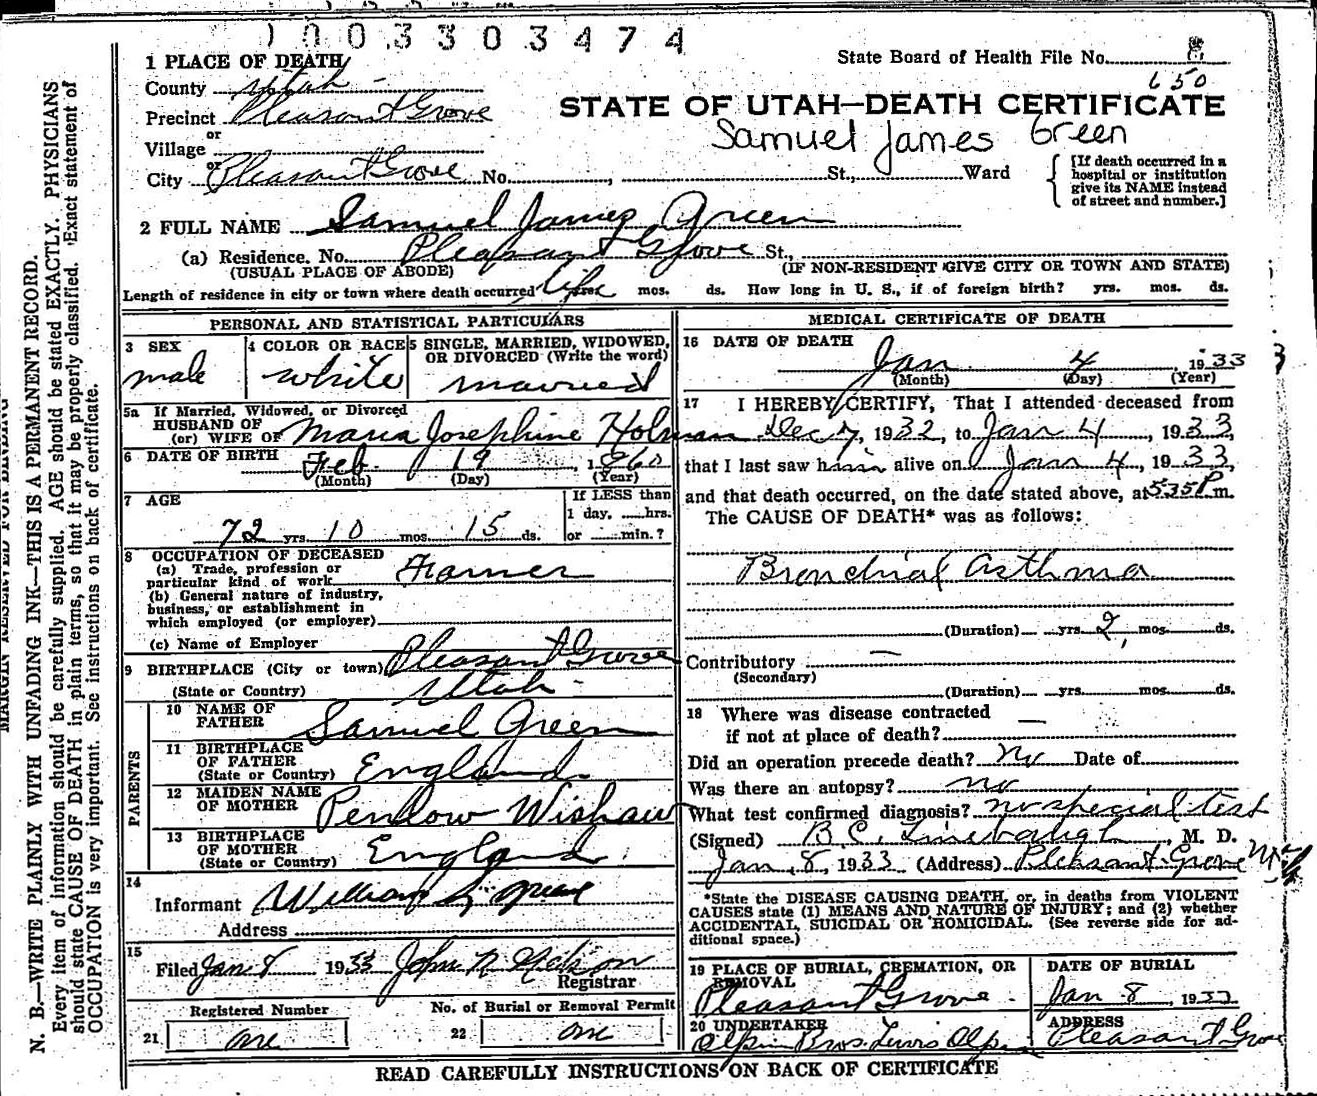 1003303474
State Board of Health File No. 8
650
1 PLACE OF DEATH
County Utah
STATE OF UTAH—DEATH CERTIFICATE
Precinct Pleasant Grove
Samuel James Green
or
Village
or
City Pleasant Grove No. , St., Ward
[If death occurred in a
hospital or institution
give its NAME instead
of street and number.]
2 FULL NAME Samuel James Green
(a) Residence. No. Pleasant Grove St.,
(USUAL PLACE OF ABODE) (IF NON-RESIDENT GIVE CITY OR TOWN AND STATE)
Length of residence in city or town where death occurred Life yrs. mos. ds. How long in U. S., if of foreign birth? yrs. mos. ds.
PERSONAL AND STATISTICAL PARTICULARS
3 SEX
male
4 COLOR OR RACE
white
5 SINGLE, MARRIED, WIDOWED,
OR DIVORCED (Write the word)
married
5a If Married, Widowed, or Divorced
HUSBAND OF
(or) WIFE OF Maria Josephine Holman
6 DATE OF BIRTH Feb. 19, 1860
(Month) (Day) (Year)
7 AGE
72 yrs. 10 mos. 15 ds.
If LESS than
1 day, hrs.
or min.?
8 OCCUPATION OF DECEASED
(a) Trade, profession or
particular kind of work Farmer
(b) General nature of industry,
business, or establishment in
which employed (or employer)
(c) Name of Employer
9 BIRTHPLACE (City or town) Pleasant Grove
(State or Country) Utah
PARENTS
10 NAME OF
FATHER Samuel Green
11 BIRTHPLACE
OF FATHER
(State or Country) England
12 MAIDEN NAME
OF MOTHER Penlow Wishaw
13 BIRTHPLACE
OF MOTHER
(State or Country) England
14
Informant William Green
Address
15
Filed Jan 8 1933 John R Nelson
Registrar
Registered Number
21 one
No. of Burial or Removal Permit
22 one
MEDICAL CERTIFICATE OF DEATH
16 DATE OF DEATH
Jan 4 1933
(Month) (Day) (Year)
17 I HEREBY CERTIFY, That I attended deceased from
Dec 7, 1932, to Jan 4, 1933,
that I last saw him alive on Jan 4, 1933,
and that death occurred, on the date stated above, at 535P m.
The CAUSE OF DEATH* was as follows:
Bronchial Asthma
(Duration) yrs. 2 mos. ds.
Contributory —
(Secondary)
(Duration) yrs. mos. ds.
18 Where was disease contracted
if not at place of death? —
Did an operation precede death? No Date of
Was there an autopsy? no
What test confirmed diagnosis? no special test
(Signed) B. C. Linebaugh, M. D.
Jan 8, 1933 (Address) Pleasant Grove
*State the DISEASE CAUSING DEATH, or, in deaths from VIOLENT
CAUSES state (1) MEANS AND NATURE OF INJURY; and (2) whether
ACCIDENTAL, SUICIDAL OR HOMICIDAL. (See reverse side for ad-
ditional space.)
19 PLACE OF BURIAL, CREMATION, OR
REMOVAL
Pleasant Grove
DATE OF BURIAL
Jan 8, 1933
20 UNDERTAKER
Olpin Bros. Lewis Olpin
ADDRESS
Pleasant Grove
READ CAREFULLY INSTRUCTIONS ON BACK OF CERTIFICATE
MARGIN RESERVED FOR BINDING
N. B.—WRITE PLAINLY WITH UNFADING INK—THIS IS A PERMANENT RECORD.
Every item of information should be carefully supplied. AGE should be stated EXACTLY. PHYSICIANS
should state CAUSE OF DEATH in plain terms, so that it may be properly classified. Exact statement of
OCCUPATION is very important. See instructions on back of certificate.